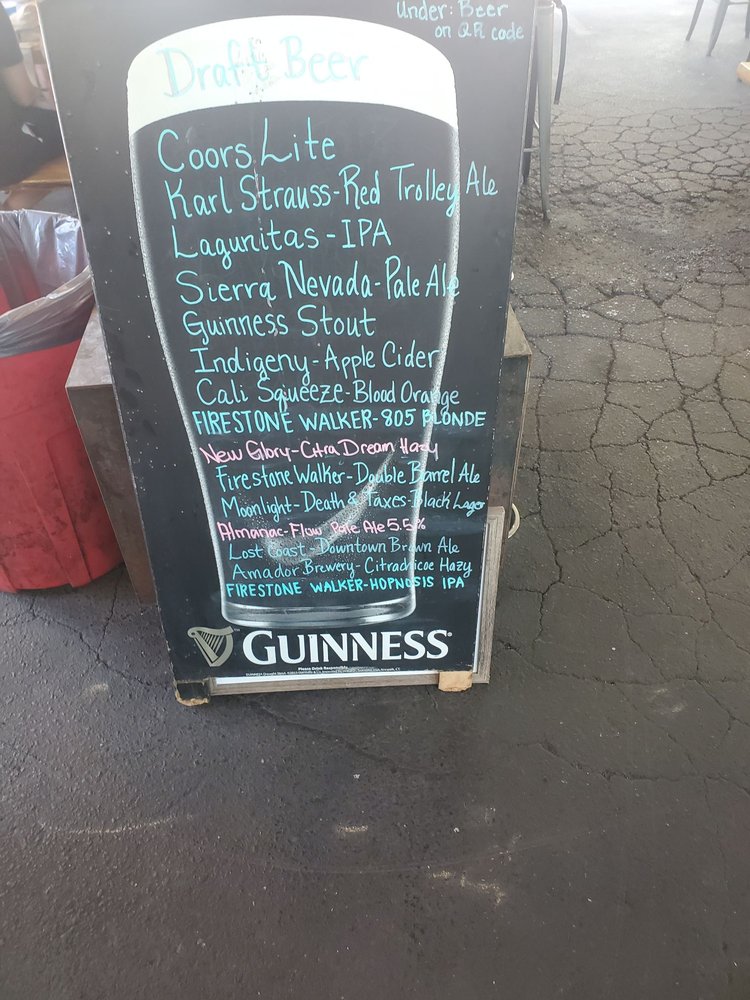 Under: Beer
on QR code
Draft Beer
Coors Lite
Karl Strauss-Red Trolley Ale
Lagunitas-IPA
Sierra Nevada-Pale Ale
Guinness Stout
Indigeny-Apple Cider
Cali Squeeze-Blood Orange
FIRESTONE WALKER-805 BLONDE
New Glory-Citra Dream Hazy
Firestone Walker-Double Barrel Ale
Moonlight-Death & Taxes-Black Lager
Almanac-Flow Pale Ale 5.5%
Lost Coast-Downtown Brown Ale
Amador Brewery-Citradicoe Hazy
FIRESTONE WALKER-HOPNOSIS IPA
GUINNESS
Please Drink Responsibly.